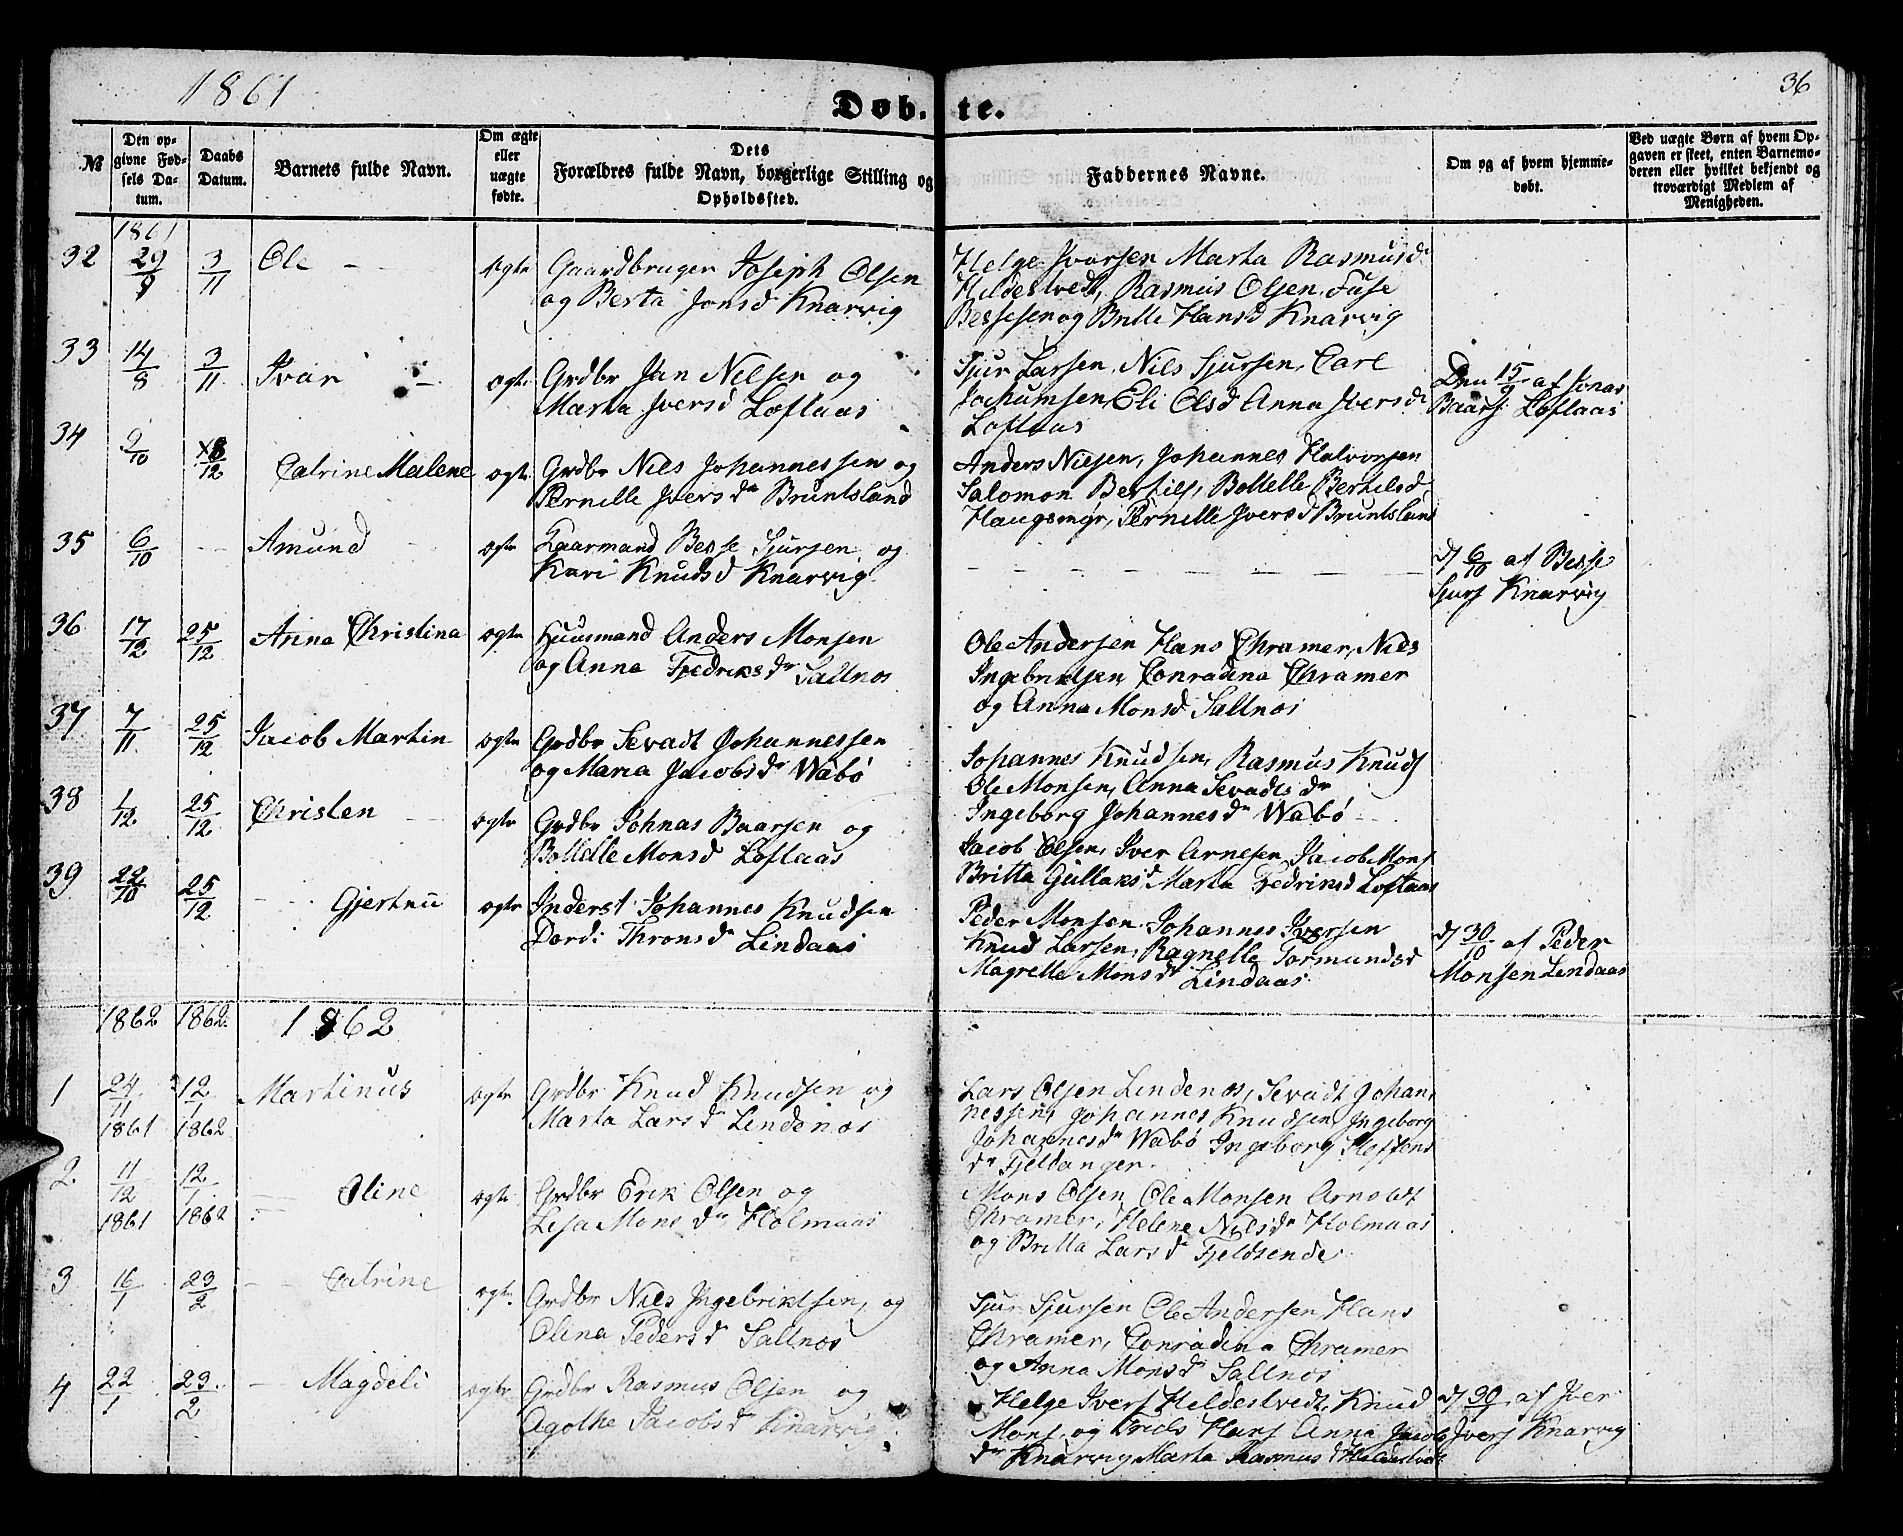 1861
36
Døb.te.
№
Den opgivne Fødsels Datum.
Daabs Datum.
Barnets fulde Navn.
Om ægte eller uægte fødte.
Dets Forældres fulde Navn, borgerlige Stilling og Opholdssted.
Faddernes Navne.
Om og af hvem hjemmedøbt.
Ved uægte Børn af hvem Opgaven er skeet, enten Barnemoderen eller hvilket bekjendt og troværdigt Medlem af Menigheden.
1861
32 29/9 3/11 Ole ægte Gaardbruger Joseph Olsen
og Berta Jonsd Knarvig
Helge Iversen Marta Rasmusd
Hildestvedt, Rasmus Olsen Fuse
Bessesen og Britte Hansd Knarvig
33 14/8 3/11 Ivar ægte Grdbr Jan Nilsen og
Marta Iversd Loftaas
Sjur Larsen, Nils Sjursen, Carl
Jochumsen, Eli Olsd Anna Iversd
Loftaas
Den 15/9 af Jonas
Baars Loftaas
34 9/10 8/12 Catrine Malene ægte Grdbr Nils Johannessen og
Pernille Iversdr Bruntsland
Anders Nilsen, Johannes Halvorsen
Salomon Bertils, Bolletle Bertilsd
Haugsmyr, Pernille Iversd Bruntsland
35 6/10 - - Amund ægte Kaarmand Besse Sjursen og
Kari Knudsd Knarvig
d/ 6/10 af Besse
Sjurs Knarvig
36 17/12 25/12 Anna Christina ægte Huusmand Anders Monsen
og Anna Fredriksdr Saltnøs
Ole Andersen Hans Chramer, Nils
Ingebriktsen Conradina Chramer
og Anna Monsd Saltnøs
37 7/11 25/12 Jacob Martin ægte Grdbr Sevadt Johannessen
og Maria Jacobsdr Wabø
Johannes Knudsen, Rasmus Knuds
Ole Monsen, Anna Sevadtsdr
Ingeborg Johannesdr Wabø
38 1/12 25/12 Christen ægte Grdbr Johnas Baarsen og
Bolletle Monsd Loftaas
Jacob Olsen, Iver Arnesen Jacob Mons
Britta Gullaksd Marta Fredriksd Loftaas
39 22/10 25/12 Gjertrui ægte Inderst Johannes Knudsen
Dordi Thronsdr Lindaas
Peder Monsen Johannes Iversen
Knud Larsen, Ragnelle Tormundsd
Magrelle Monsdr Lindaas
d/ 30/10 af Peder
Monsen Lindaas
1862 1862 1862
1 24/11 1861 12/1 1862 Martinus ægte Grdbr Knud Knudsen og
Marta Larsdr Lindenøs
Lars Olsen Lindenøs, Sevadt Johan
nessen, Johannes Knudsen, Ingeborg
Johannesdr Wabø Ingeborg Steffens
dr Fjeldanger.
2. 11/12 1861 12/1 1862 Oline ægte Grdbr Erik Olsen og
Lisa Monsdr Holmaas
Mons Olsen, Ole Monsen Arnoldt
Chramer, Helene Nilsdr Holmaas
og Britta Larsdr Fjeldsende
3 16/1 23/2 Catrine ægte Grdbr Nils Ingebriktsen, og
Olina Pedersd Saltnøs
Sjur Sjursen Ole Andersen Hans
Chramer, Conradina Chramer
og Anna Monsdr Saltnøs
4 22/1 23/2 Magdeli ægte Grdbr Rasmus Olsen og
Agothe Jacobsdr Knarvig
Helge Ivers Hildestvedt, Knud
Mons og Hans Anna Jacobs
dr Knarvig Marta Rasmusd Hildestvedt
d/ 30/1 af Iver
Ivers Knarvig